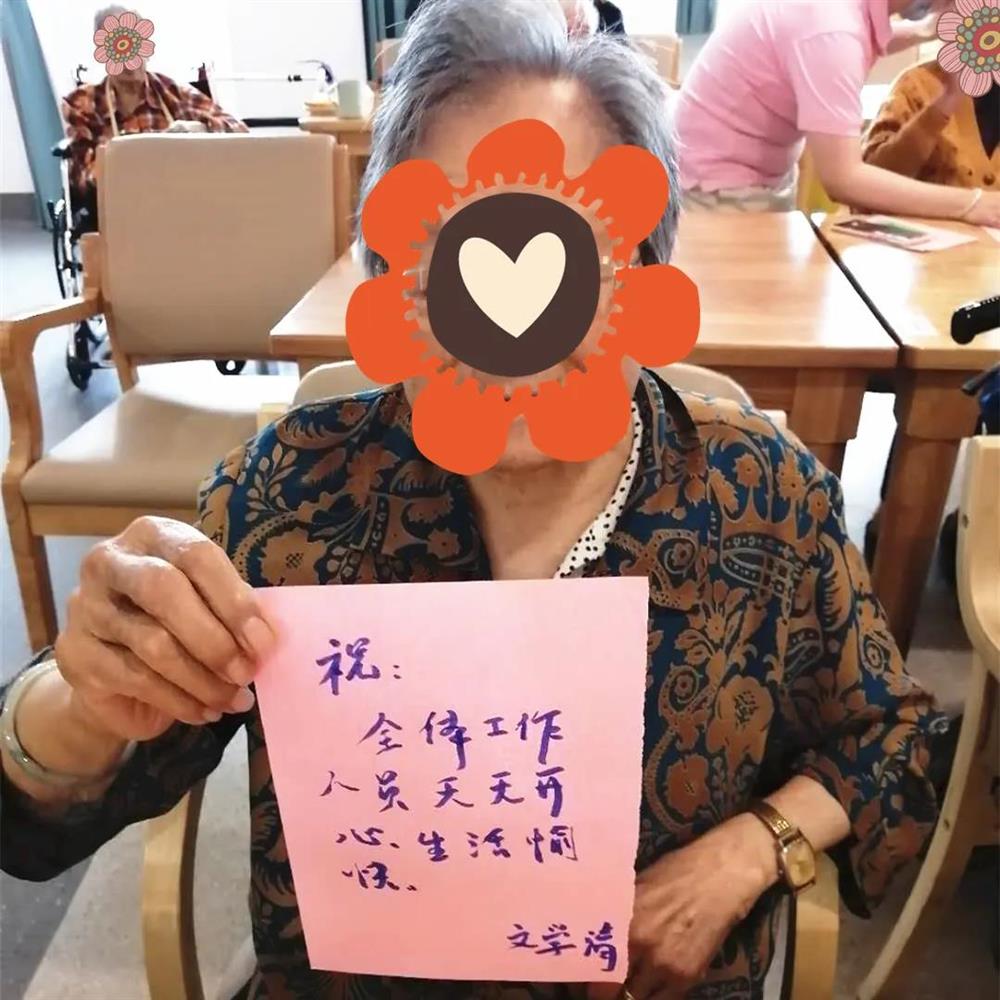 祝：
全体工作
人员天天开
心、生活愉
快、
文学清